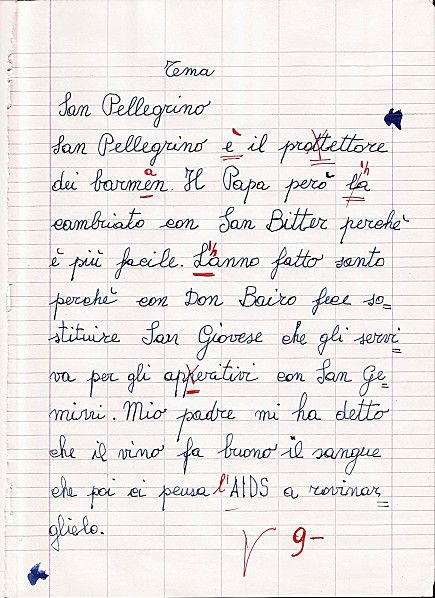 Tema
San Pellegrino
San Pellegrino è il prottettore
dei barmen. Il Papa però la
cambiato con San Bitter perchè
è più facile. Lanno fatto santo
perchè con Don Bairo fece so=
stituire San Giovese che gli servi=
va per gli apperitivi con San Ge=
mini. Mio padre mi ha detto
che il vino fa buono il sangue
che poi ci pensa l'AIDS a rovinar=
glielo.
V 9-